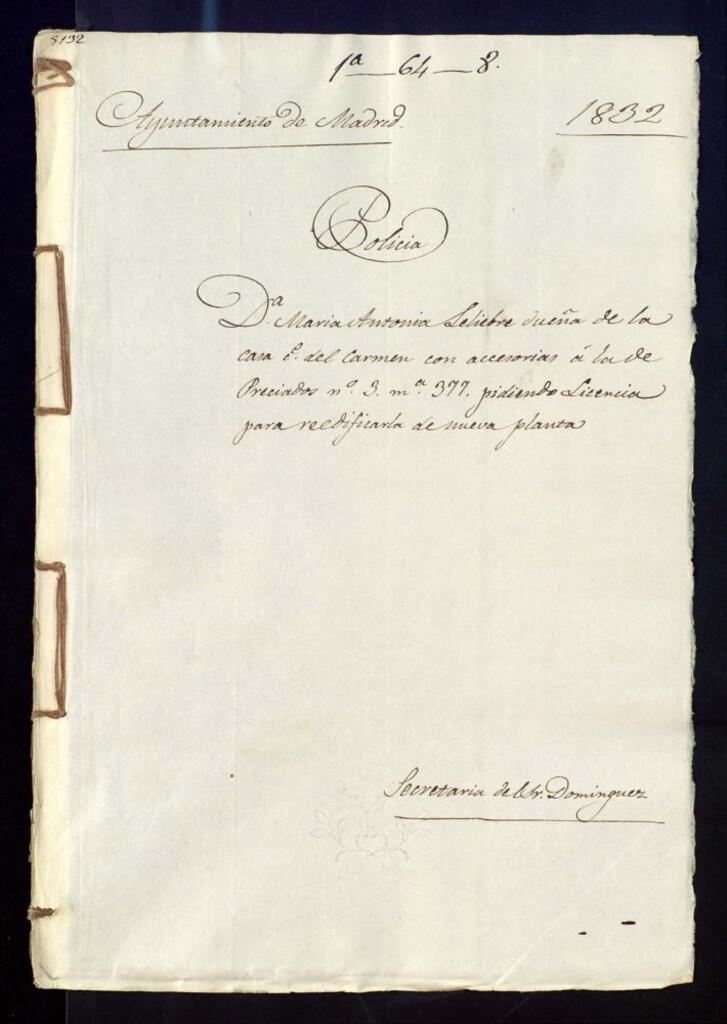 5132
1ª — 64 — 8.
Ayuntamiento de Madrid.
1832
Policia
D.ª Maria Antonia Leliebre dueña de la
casa c.e del Carmen con accesorias á la de
Preciados nº. 3. mª. 377. pidiendo Licencia
para reedificarla de nueva planta
Secretaria del Sr. Dominguez